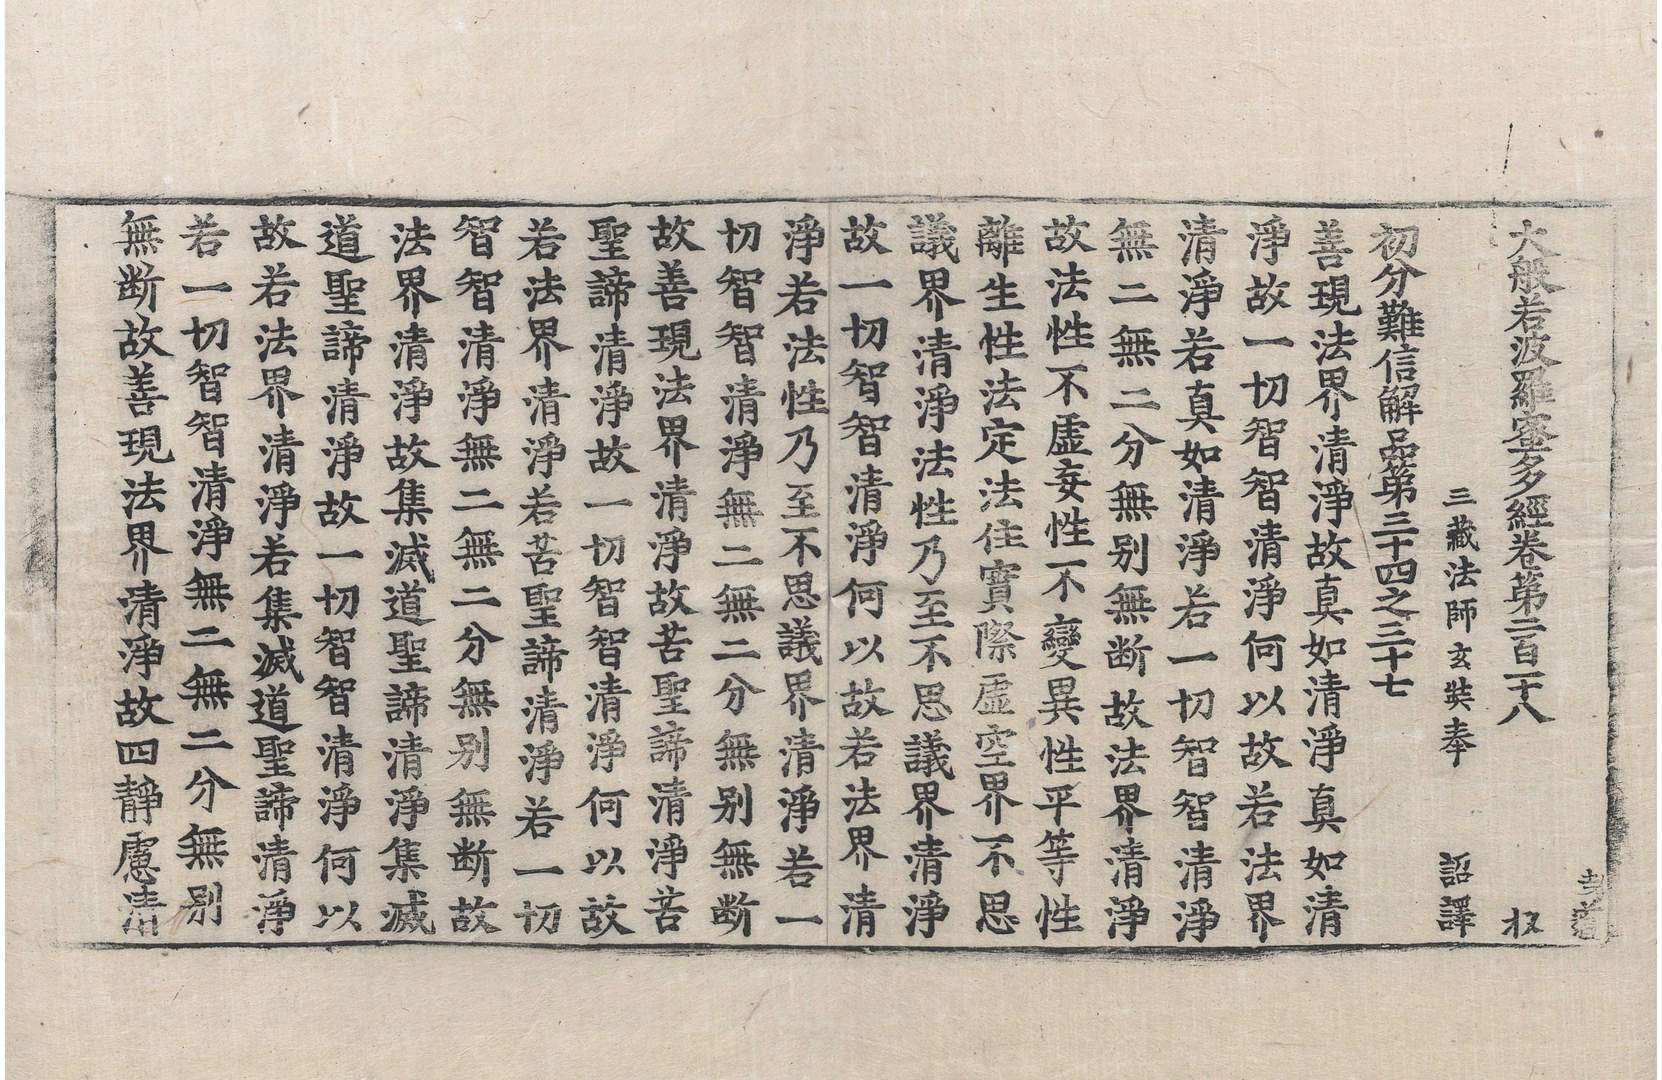 大般若波羅蜜多經卷第二百一十八 收
三藏法師玄奘奉 詔譯
初分難信解品第三十四之三十七
善現法界清淨故真如清淨真如清
淨故一切智智清淨何以故若法界
清淨若真如清淨若一切智智清淨
無二無二分無别無断故法界清淨
故法性不虛妄性不變異性平等性
離生性法定法住實際虛空界不思
議界清淨法性乃至不思議界清淨
故一切智智清淨何以故若法界清
淨若法性乃至不思議界清淨若一
切智智清淨無二無二分無别無断
故善現法界清淨故苦聖諦清淨苦
聖諦清淨故一切智智清淨何以故
若法界清淨若苦聖諦清淨若一切
智智清淨無二無二分無别無断故
法界清淨故集滅道聖諦清淨集滅
道聖諦清淨故一切智智清淨何以
故若法界清淨若集滅道聖諦清淨
若一切智智清淨無二無二分無别
無断故善現法界清淨故四靜慮清